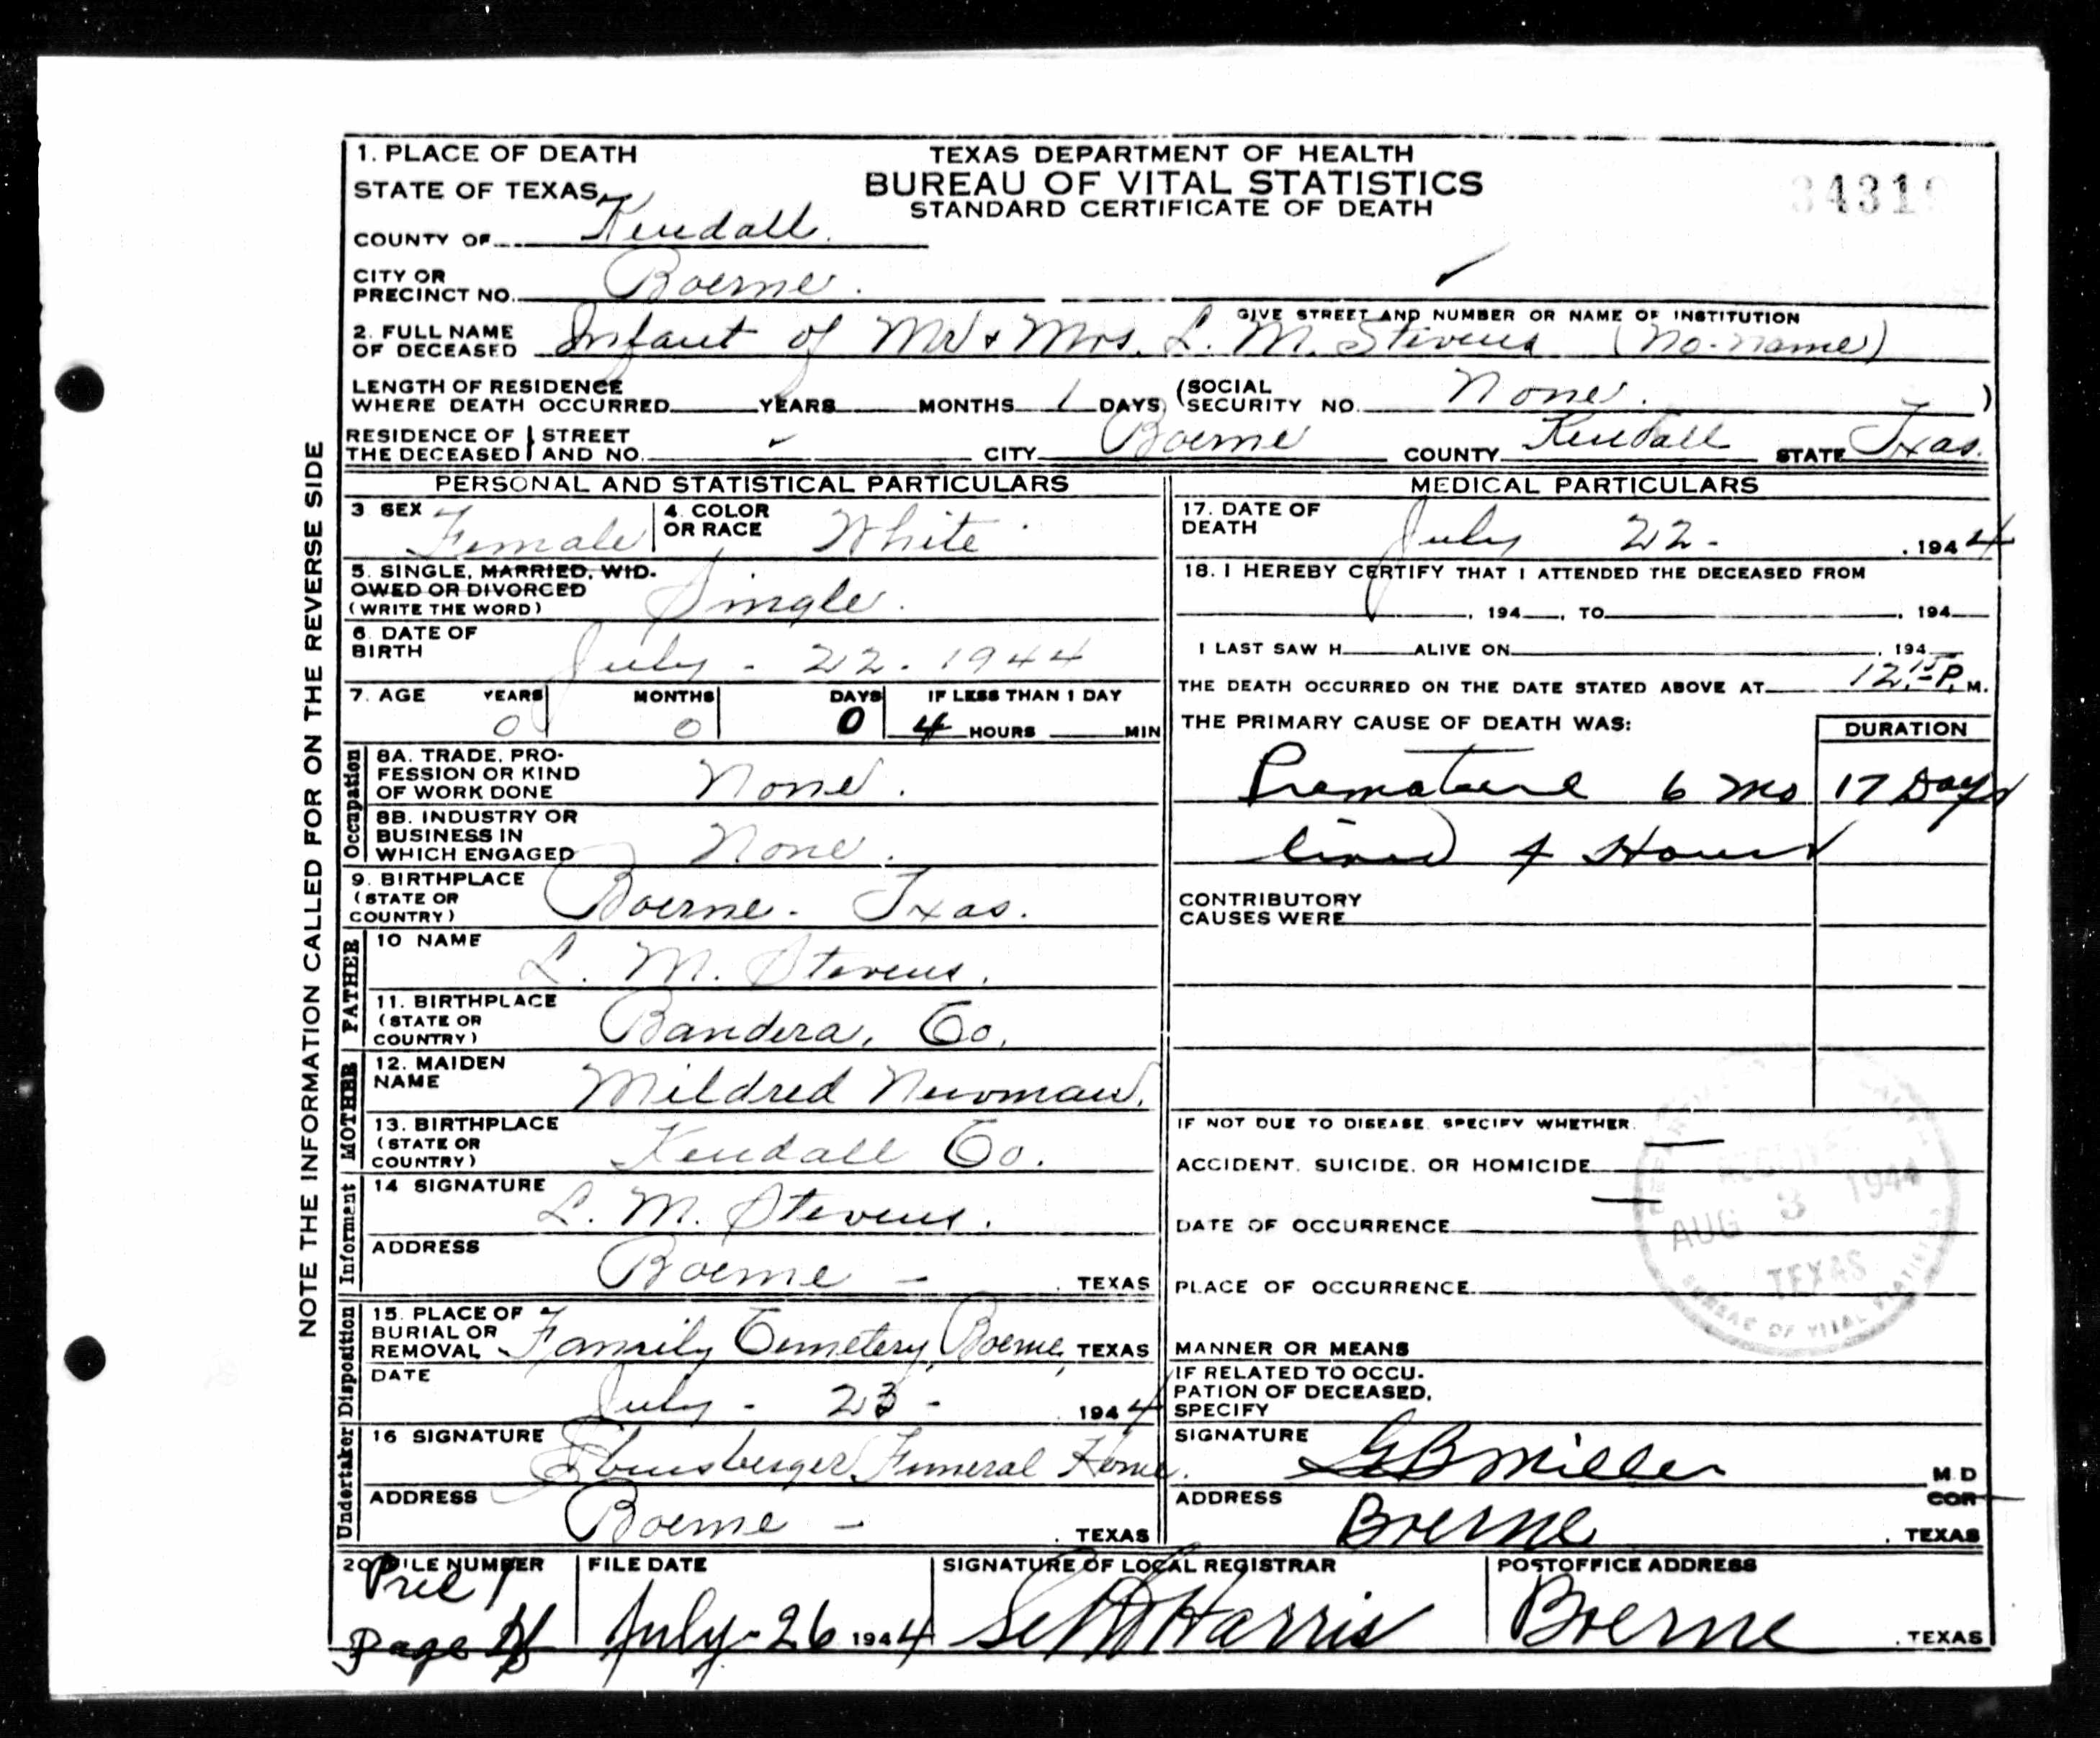 NOTE THE INFORMATION CALLED FOR ON THE REVERSE SIDE
TEXAS DEPARTMENT OF HEALTH
BUREAU OF VITAL STATISTICS
STANDARD CERTIFICATE OF DEATH
3431
1. PLACE OF DEATH
STATE OF TEXAS
COUNTY OF Kendall
CITY OR PRECINCT NO. Boerne.
GIVE STREET AND NUMBER OR NAME OF INSTITUTION
2. FULL NAME OF DECEASED Infant of Mr & Mrs. L. M. Stevens (No-name)
LENGTH OF RESIDENCE WHERE DEATH OCCURRED YEARS MONTHS 1 DAYS (SOCIAL SECURITY NO. None. )
RESIDENCE OF THE DECEASED STREET AND NO. - CITY Boerne COUNTY Kendall STATE Texas.
PERSONAL AND STATISTICAL PARTICULARS
3 SEX Female 4. COLOR OR RACE White
5. SINGLE, MARRIED, WIDOWED OR DIVORCED (WRITE THE WORD) Single.
6. DATE OF BIRTH July - 22 - 1944
7. AGE YEARS 0 MONTHS 0 DAYS 0 IF LESS THAN 1 DAY 4 HOURS MIN
Occupation
8A. TRADE, PROFESSION OR KIND OF WORK DONE None.
8B. INDUSTRY OR BUSINESS IN WHICH ENGAGED None.
9. BIRTHPLACE (STATE OR COUNTRY) Boerne - Texas.
FATHER
10 NAME L. M. Stevens.
11. BIRTHPLACE (STATE OR COUNTRY) Bandera, Co.
MOTHER
12. MAIDEN NAME Mildred Newman.
13. BIRTHPLACE (STATE OR COUNTRY) Kendall Co.
Informant
14 SIGNATURE L. M. Stevens.
ADDRESS Boerne - TEXAS
Disposition
15. PLACE OF BURIAL OR REMOVAL Family Cemetery, Boerne, TEXAS
DATE July - 23 - 1944
Undertaker
16 SIGNATURE Ebensberger Funeral Home.
ADDRESS Boerne - . TEXAS
MEDICAL PARTICULARS
17. DATE OF DEATH July 22 - , 1944
18. I HEREBY CERTIFY THAT I ATTENDED THE DECEASED FROM
, 194 , TO , 194
I LAST SAW H ALIVE ON , 194
THE DEATH OCCURRED ON THE DATE STATED ABOVE AT 12:15 P. M.
THE PRIMARY CAUSE OF DEATH WAS: DURATION
Premature 6 Mo 17 Days
lived 4 Hours
CONTRIBUTORY CAUSES WERE
IF NOT DUE TO DISEASE, SPECIFY WHETHER:
ACCIDENT, SUICIDE, OR HOMICIDE
DATE OF OCCURRENCE
PLACE OF OCCURRENCE
MANNER OR MEANS
IF RELATED TO OCCUPATION OF DECEASED, SPECIFY
AUG 3 1944
TEXAS
BUREAU OF VITAL STATISTICS
SIGNATURE G B Miller M D
COR
ADDRESS Boerne . TEXAS
20 FILE NUMBER Prec 1
Page
FILE DATE July - 26 1944
SIGNATURE OF LOCAL REGISTRAR Harris
POSTOFFICE ADDRESS Boerne . TEXAS